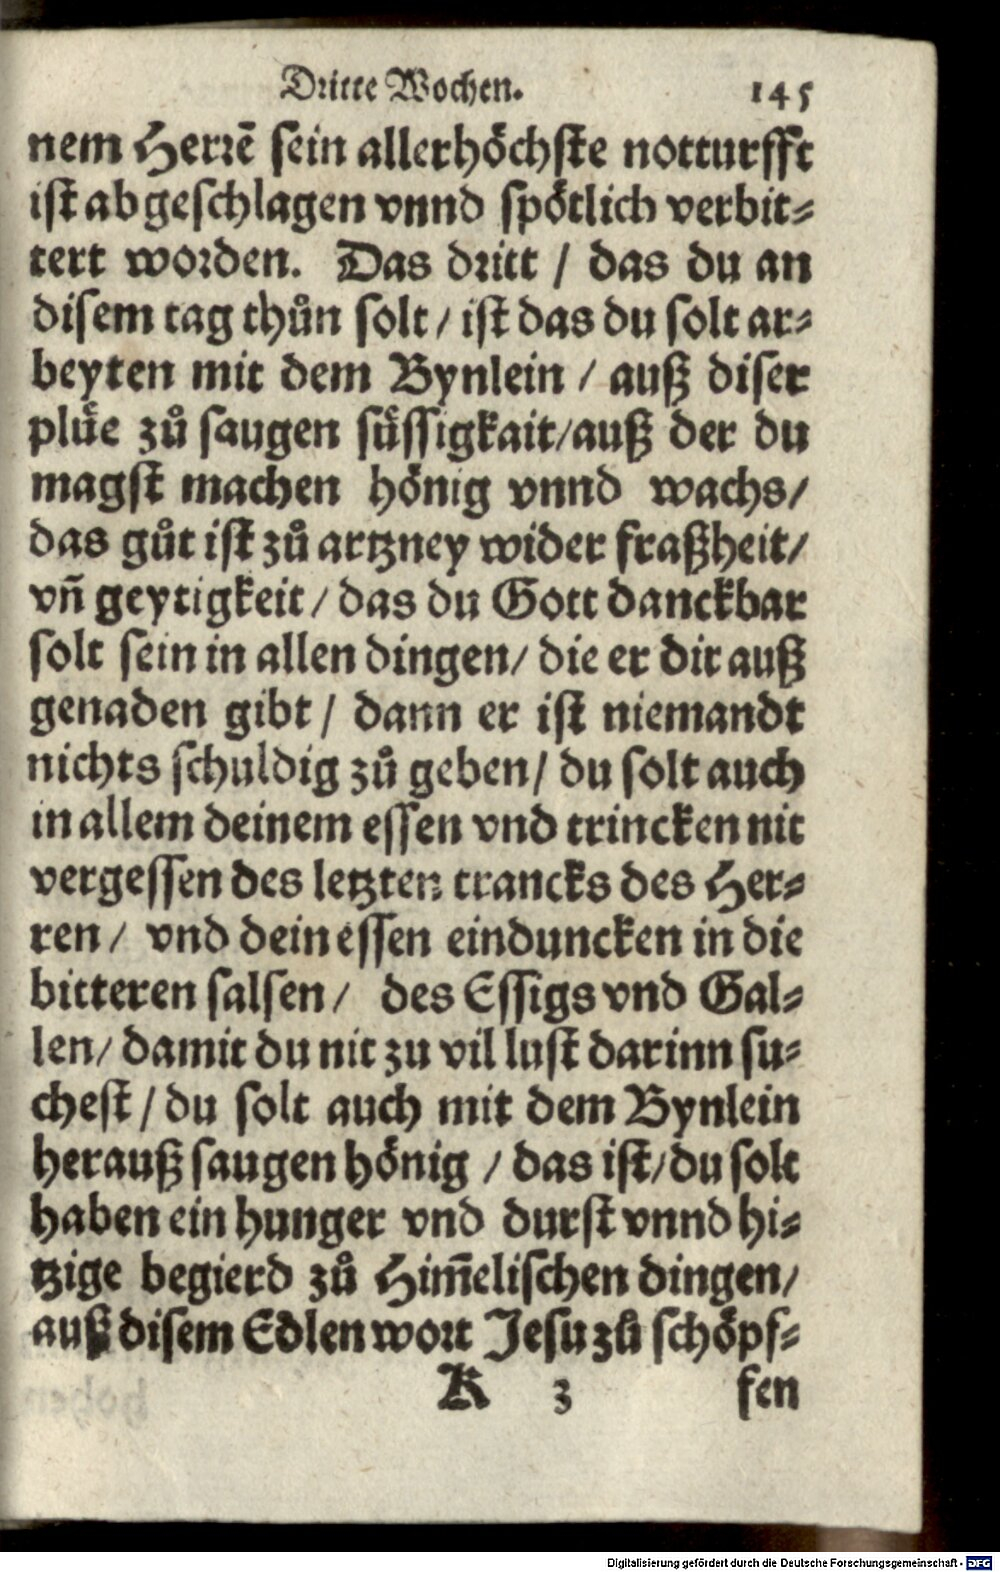 Dritte Wochen. 145
nem Herrē sein allerhöchste notturfft
ist abgeschlagen vnnd spötlich verbit⸗
tert worden. Das dritt / das du an
disem tag thůn solt / ist das du solt ar⸗
beyten mit dem Bynlein / auß diser
plüe zů saugen süssigkait/auß der du
magst machen hönig vnnd wachs/
das gůt ist zů artzney wider fraßheit/
vñ geytigkeit / das du Gott danckbar
solt sein in allen dingen/ die er dir auß
genaden gibt / dann er ist niemandt
nichts schuldig zů geben/ du solt auch
in allem deinem essen vnd trincken nit
vergessen des letzten trancks des Her⸗
ren / vnd dein essen einduncken in die
bitteren salsen / des Essigs vnd Gal⸗
len/ damit du nit zu vil lust darinn su⸗
chest / du solt auch mit dem Bynlein
herauß saugen hönig / das ist/du solt
haben ein hunger vnd durst vnnd hi⸗
tzige begierd zů Him̄elischen dingen/
auß disem Edlen wort Jesu zů schöpf⸗
K 3 fen
Digitalisierung gefördert durch die Deutsche Forschungsgemeinschaft - DFG